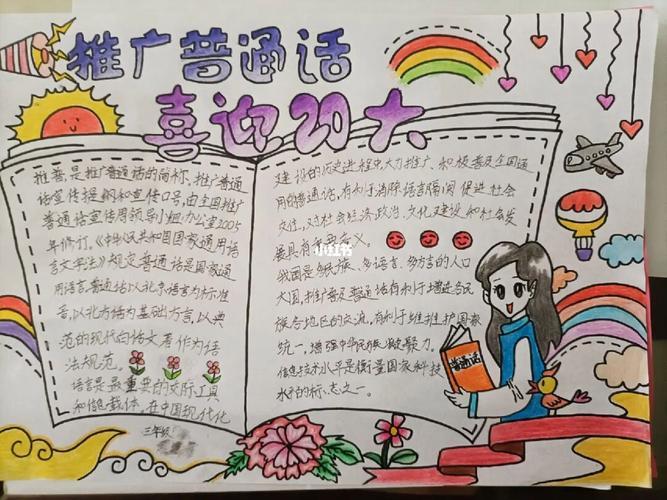 推广普通话
喜迎20大
推普,是推广普通话的简称。推广普通
话宣传提纲和宣传口号,由全国推广
普通话宣传周领导小组办公室2005
年修订。《中华人民共和国国家通用语
言文字法》规定普通话是国家通
用语言,普通话以北京语言为标准
音,以北方话为基础方言,以典
范的现代白话文著作为语
法规范。
语言是最重要的交际工具
和信息载体。在中国现代化
三年级
建设的历史进程中,大力推广、和积极普及全国通
用的普通话,有利于消除语言隔阂 促进社会
交往,对社会经济、政治、文化建设和社会发
展具有重要意义。
我国是多民族、多语言、多方言的人口
大国,推广普及普通话有利于增进各民
族各地区的交流,有利于维护国家
统一,增强中华民族凝聚力。
信息技术水平是衡量国家科技
水平的标志之一。
普通话
小红书